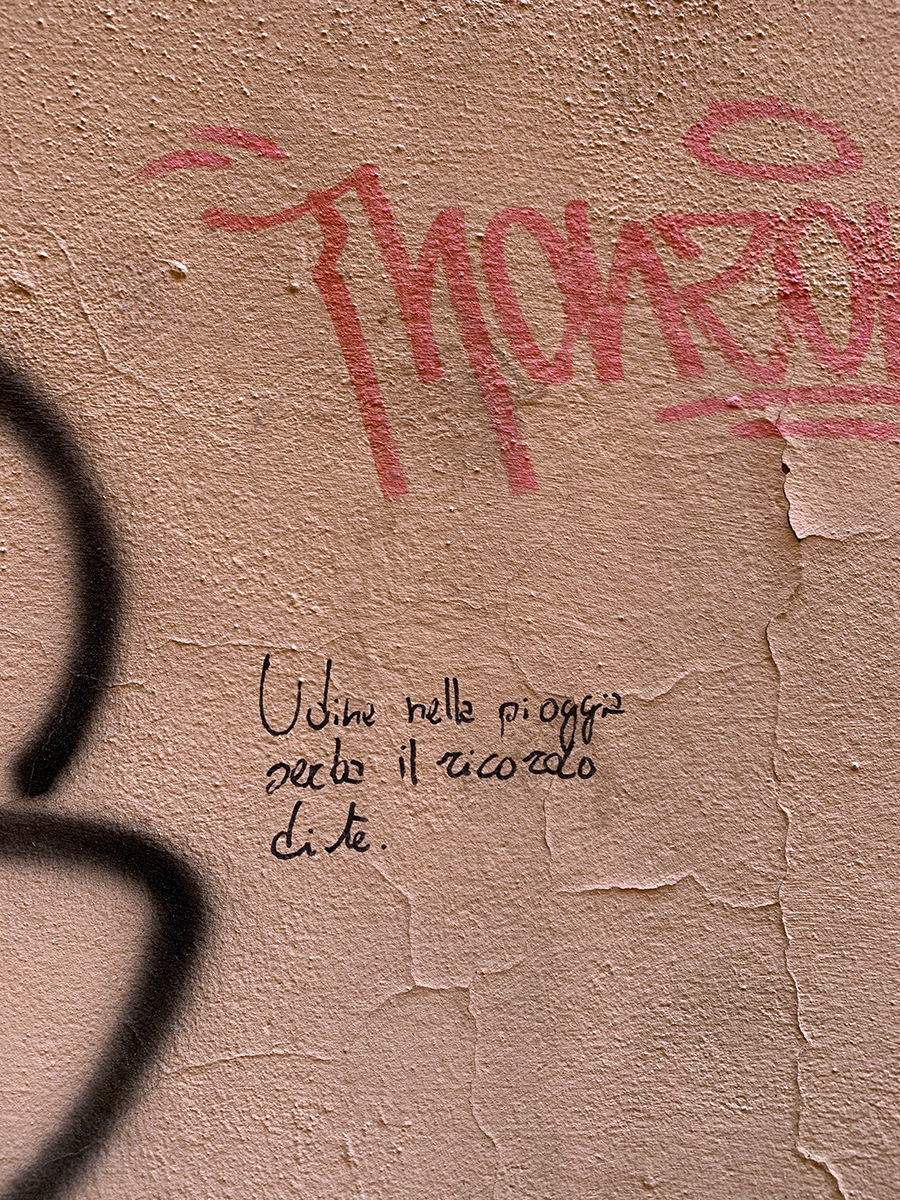 Udine nella pioggia
serba il ricordo
di te.